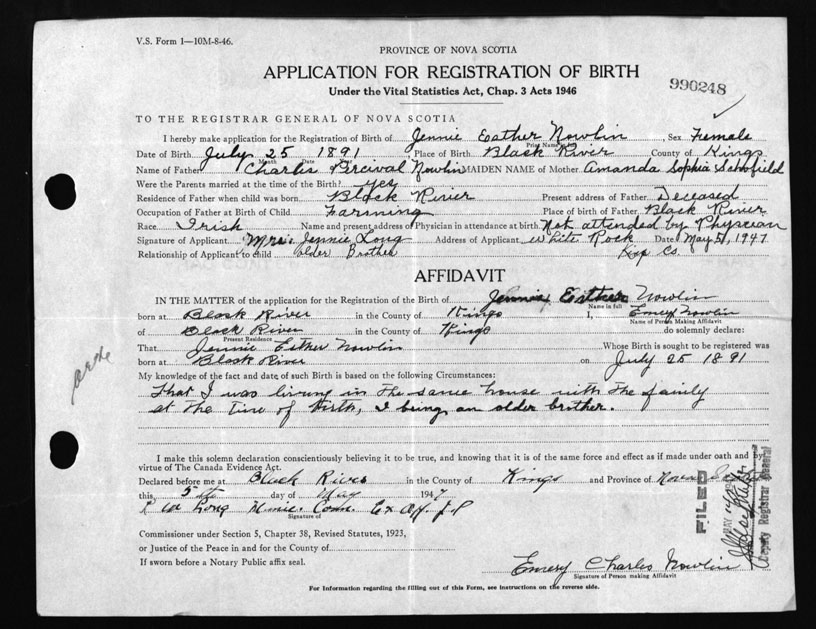 V.S. Form 1—10M-8-46.
PROVINCE OF NOVA SCOTIA
APPLICATION FOR REGISTRATION OF BIRTH
990248
Under the Vital Statistics Act, Chap. 3 Acts 1946
TO THE REGISTRAR GENERAL OF NOVA SCOTIA
I hereby make application for the Registration of Birth of Jennie Esther Nowlin, Sex Female
Print Name in full
Date of Birth July 25 1891, Place of Birth Black River County of Kings
Month Date
Name of Father Charles Percival Nowlin MAIDEN NAME of Mother Amanda Sophia Schofield
Were the Parents married at the time of the Birth? yes
Residence of Father when child was born Black River Present address of Father Deceased
Occupation of Father at Birth of Child Farming Place of birth of Father Black River
Race Irish Name and present address of Physician in attendance at birth Not attended by Physician
Signature of Applicant Mrs. Jennie Long Address of Applicant White Rock Date May 5, 1947
Relationship of Applicant to child older Brother Co
AFFIDAVIT
IN THE MATTER of the application for the Registration of the Birth of Jennie Esther Nowlin
Name in full
born at Black River in the County of Kings I, Emery Nowlin
Name of Person Making Affidavit
of Black River in the County of Kings do solemnly declare:
Present Residence
That Jennie Esther Nowlin Whose Birth is sought to be registered was
born at Black River on July 25 1891
My knowledge of the fact and date of such Birth is based on the following Circumstances:
That I was living in the same house with the family
at the time of birth, I being an older brother.
I make this solemn declaration conscientiously believing it to be true, and knowing that it is of the same force and effect as if made under oath and by
virtue of The Canada Evidence Act.
Declared before me at Black River in the County of Kings and Province of Nova Scotia
this 5th day of May 1947
Long Munic. Coun. Ex Off J P
Signature of
Commissioner under Section 5, Chapter 38, Revised Statutes, 1923,
or Justice of the Peace in and for the County of
If sworn before a Notary Public affix seal.
Emery Charles Nowlin
Signature of Person making Affidavit
For Information regarding the filling out of this Form, see instructions on the reverse side.
FILED
MAY
Deputy Registrar General